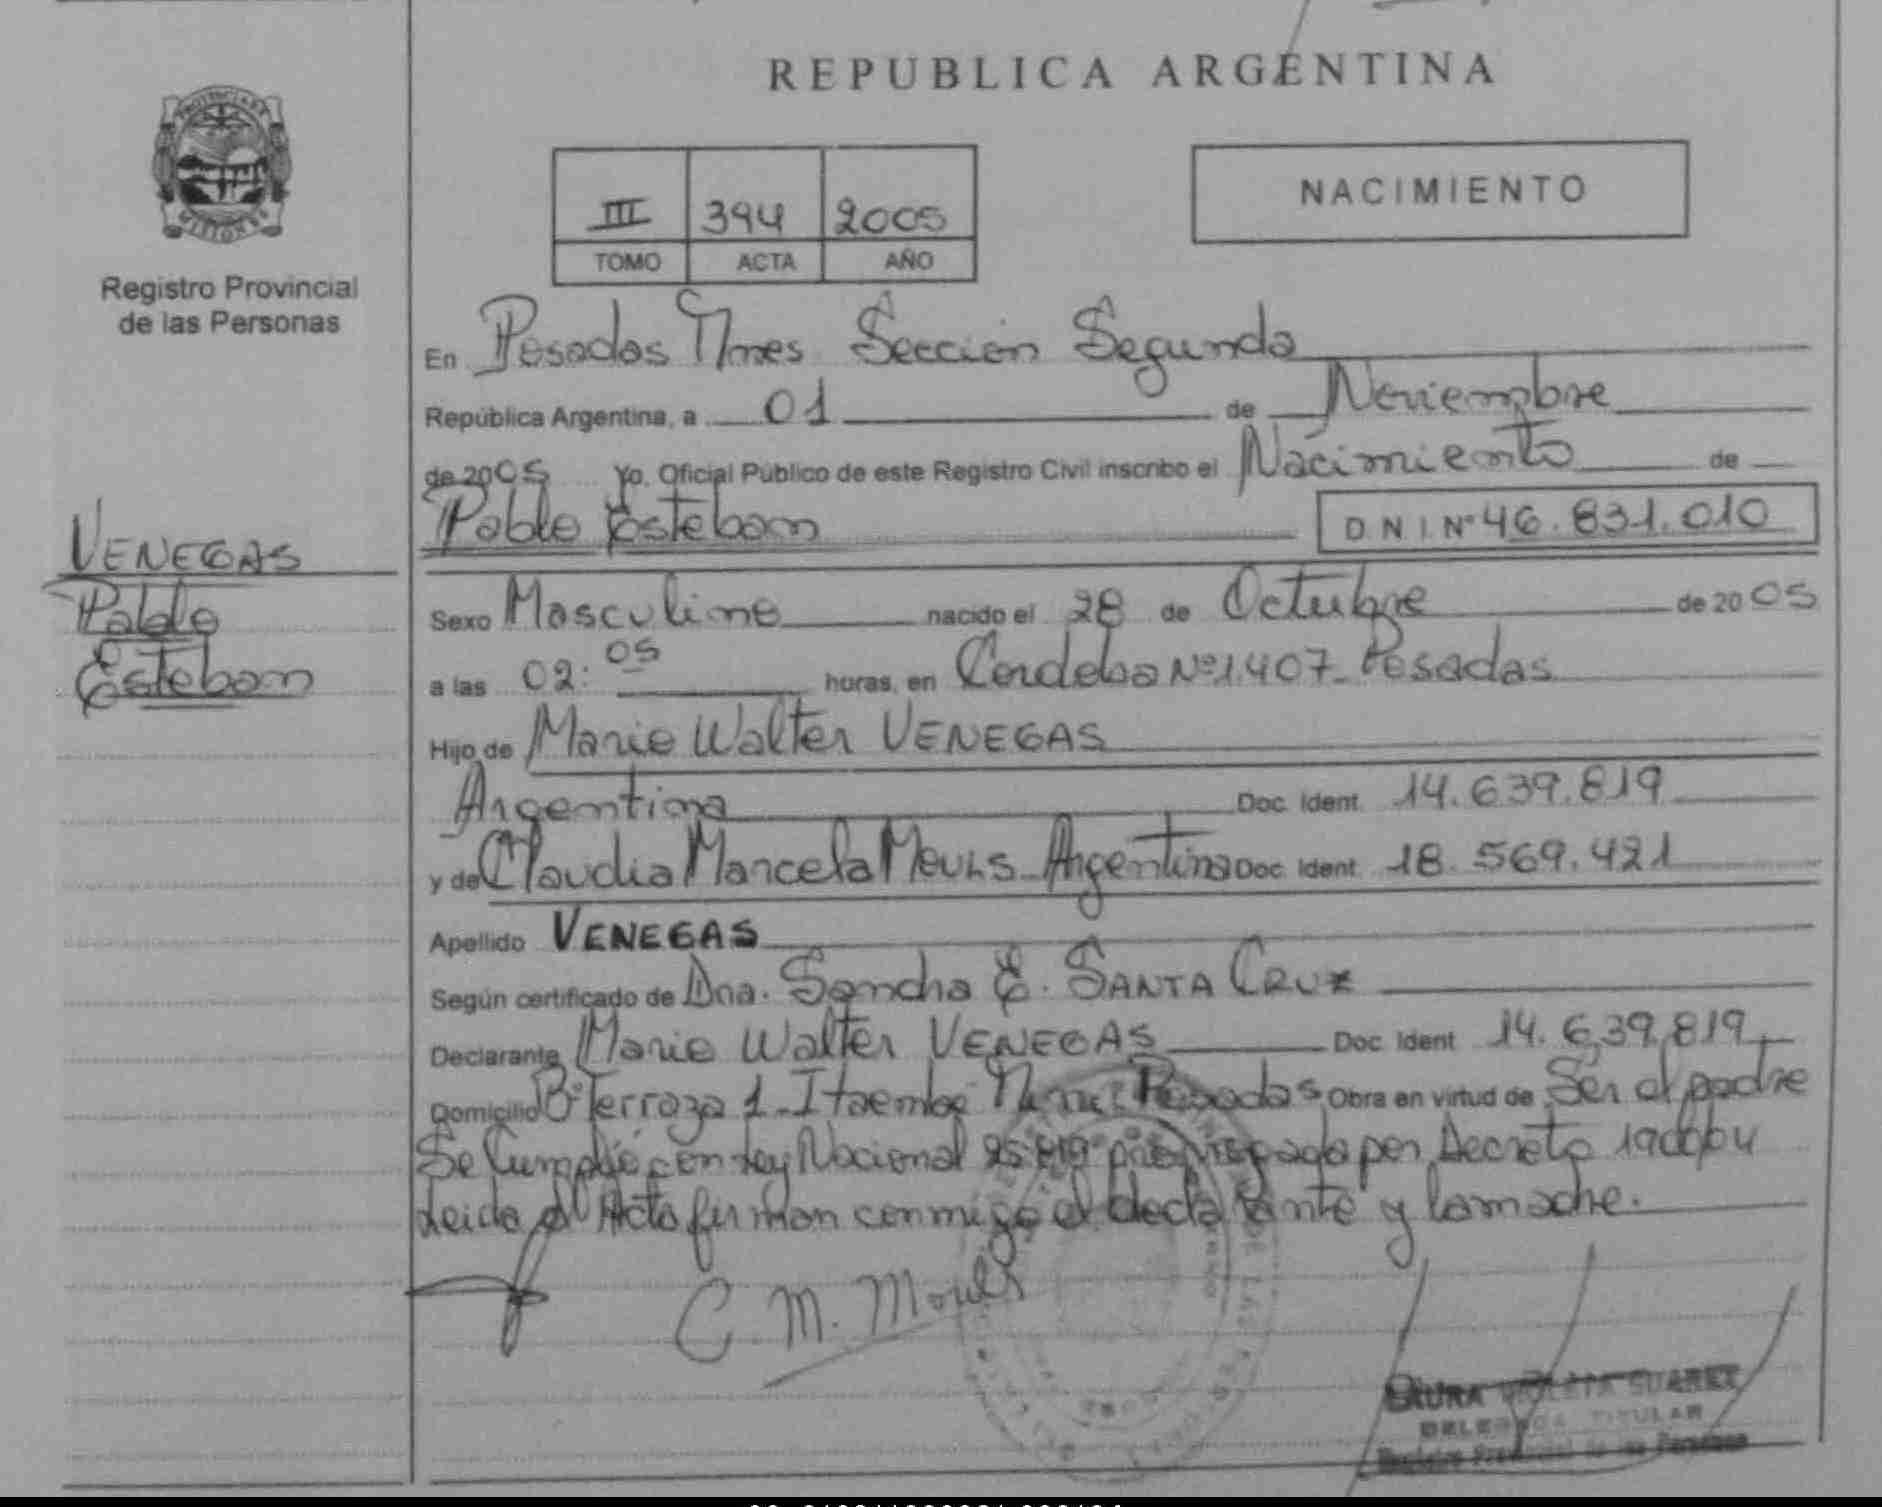 REPUBLICA ARGENTINA
III 394 2005
TOMO ACTA AÑO
NACIMIENTO
Registro Provincial
de las Personas
VENEGAS
Pablo
Esteban
En Posadas Mnes Sección Segunda
República Argentina, a 01 de Noviembre
de 2005 Yo, Oficial Público de este Registro Civil inscribo el Nacimiento de
Pablo Esteban D N I Nº 46.831.010
Sexo Masculino nacido el 28 de Octubre de 2005
a las 02:05 horas, en Cordoba Nº 1.407 Posadas
Hijo de Mario Walter VENEGAS
Argentina Doc. Ident. 14.639.819
y de Claudia Marcela Mouls Argentina Doc. Ident. 18.569.421
Apellido VENEGAS
Según certificado de Dra. E. SANTA CRUZ
Declarante Mario Walter VENEGAS Doc. Ident 14.639.819
Domicilio Bº Terraza 1 Itaembé Mini Posadas Obra en virtud de Ser el padre
Se Cumplió con Ley Nacional por Decreto
Leida el Acta firman conmigo el declarante y la madre.
C. M. Mouls
LAURA VIOLETA SUAREZ
DELEGADA TITULAR
Registro Provincial de las Personas